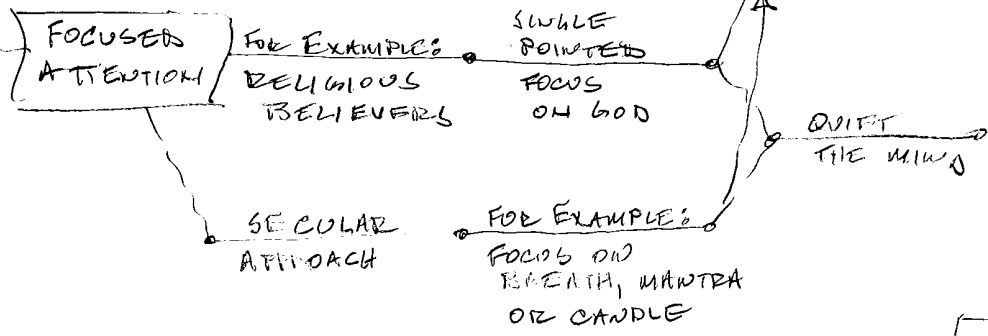 FOCUSED
ATTENTION
FOR EXAMPLE:
RELIGIOUS
BELIEVERS
SINGLE
POINTED
FOCUS
ON GOD
QUIET
THE MIND
SECULAR
APPROACH
FOR EXAMPLE:
FOCUS ON
BREATH, MANTRA
OR CANDLE